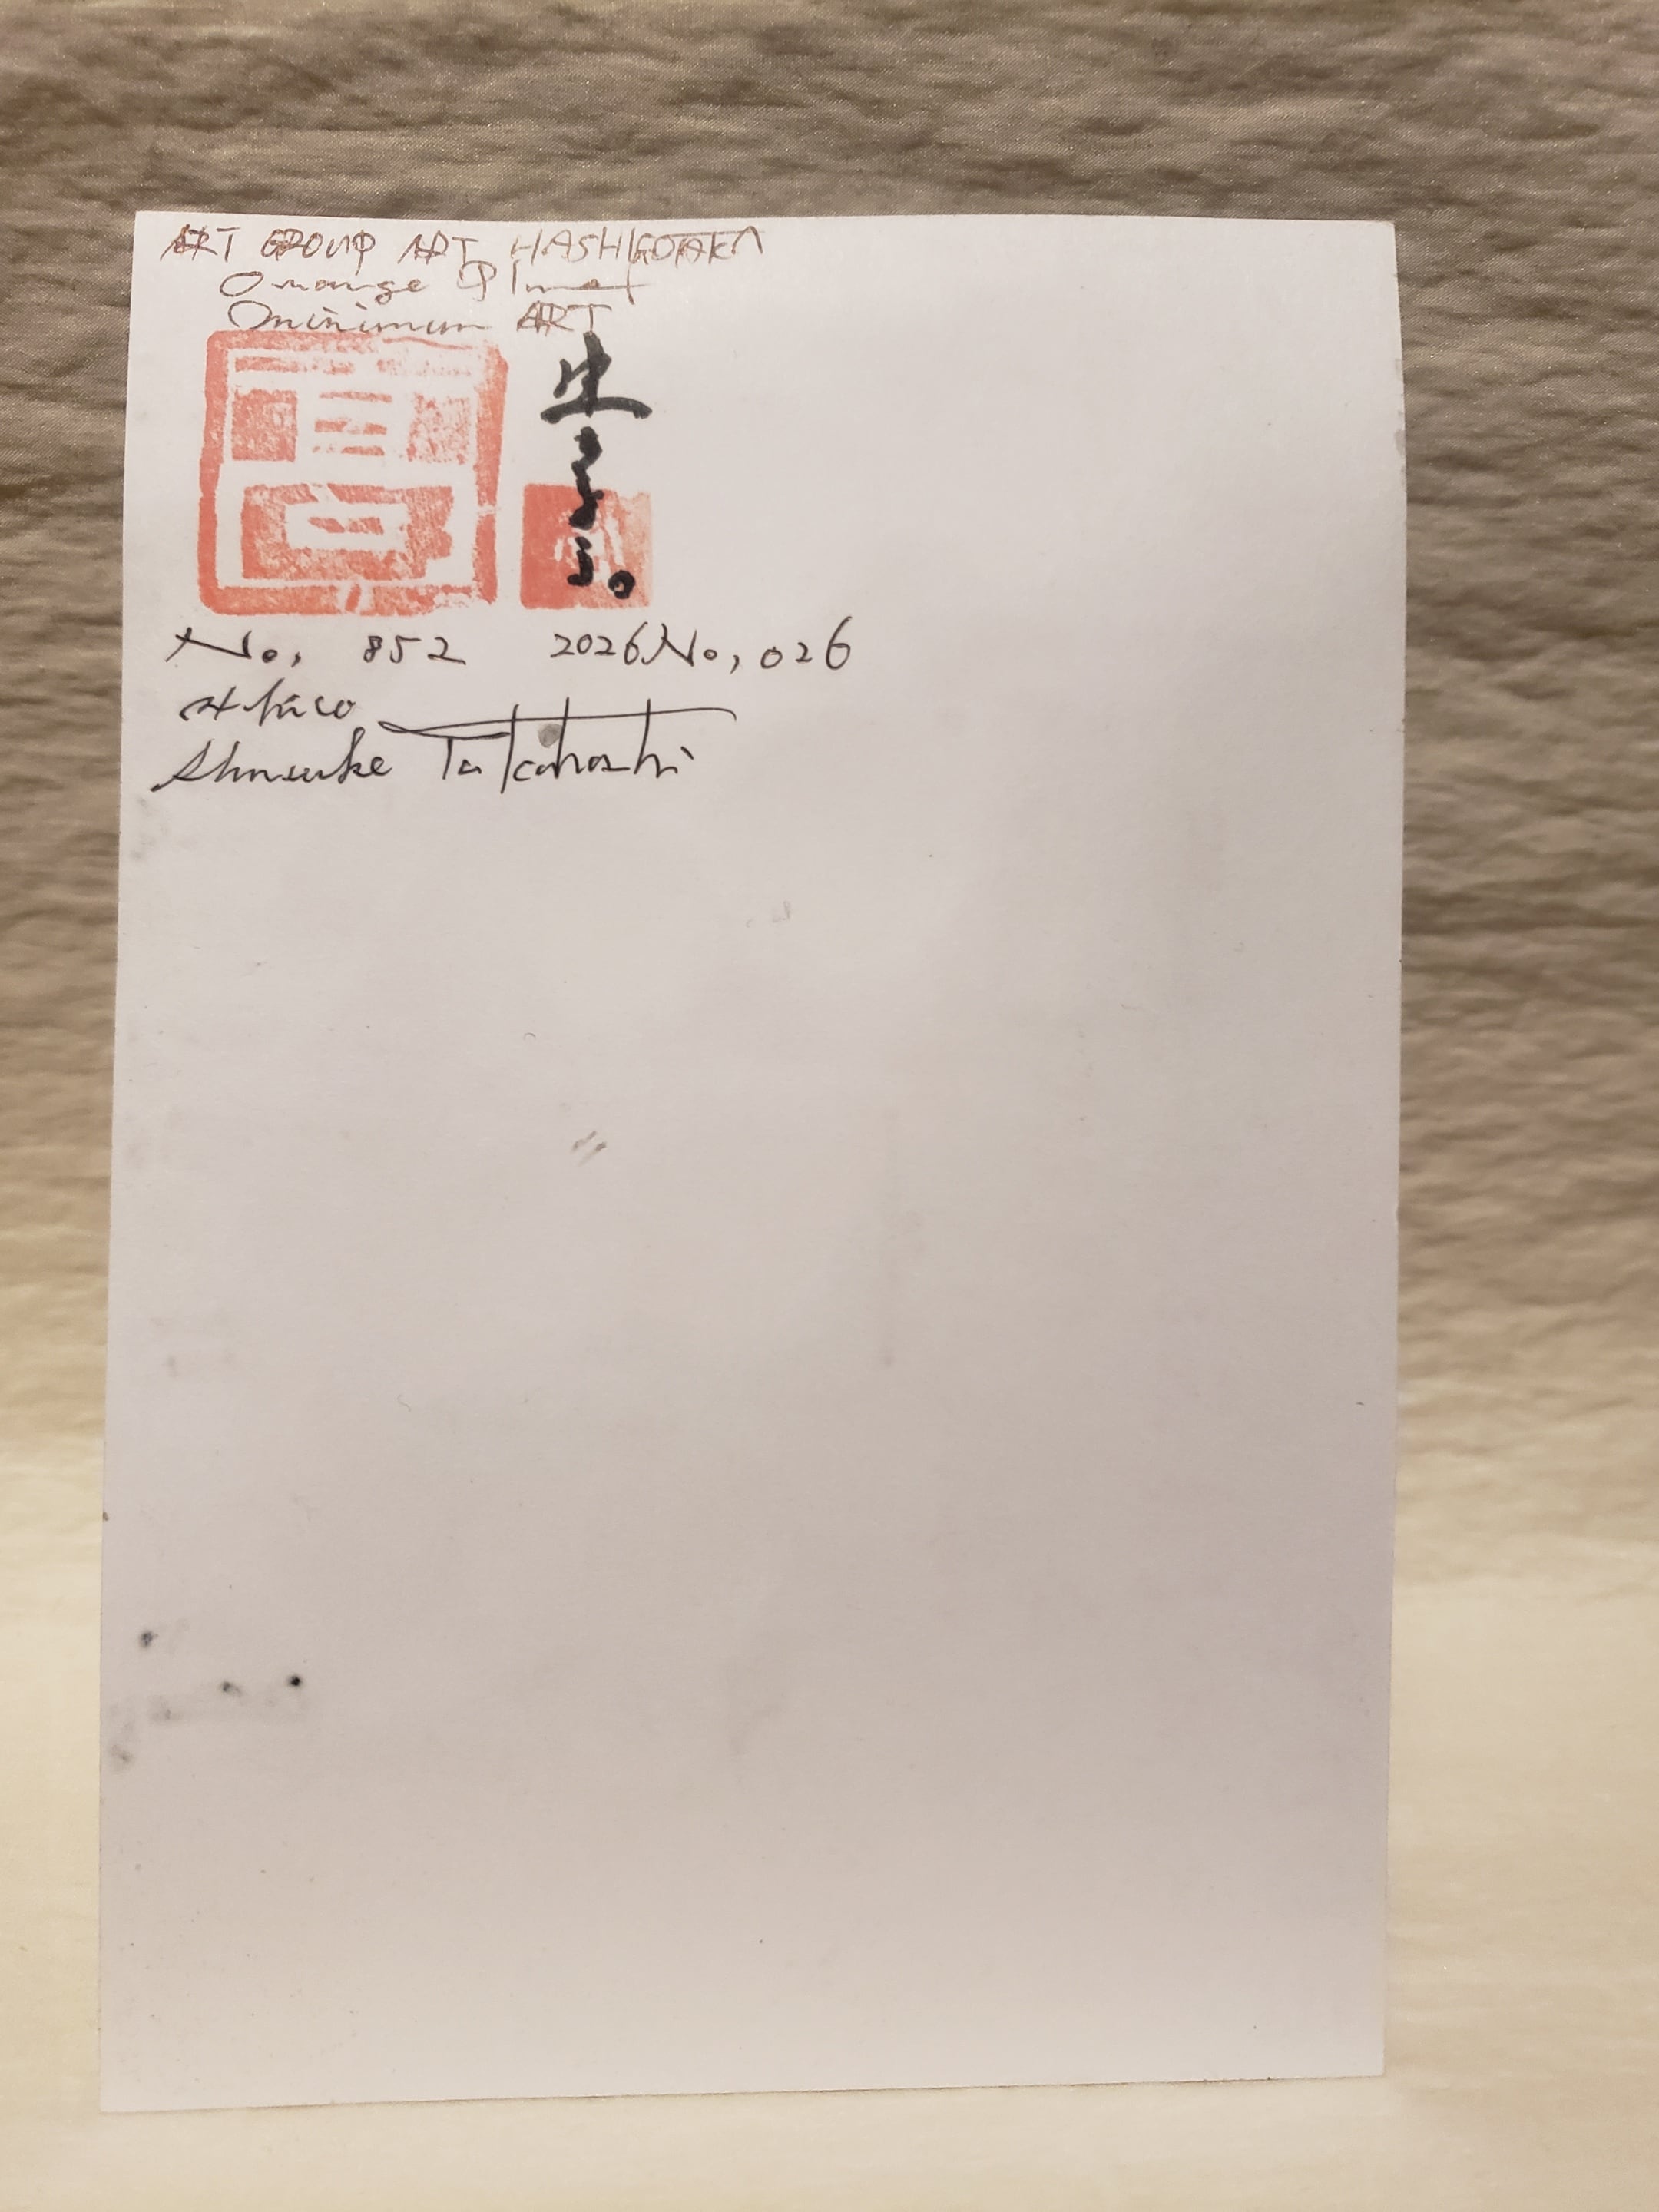 ART GROUP ART HASHIGOTAKA
Orange Planet
minimum ART
髙
No, 852 2026No, 026
Shunsuke Takahashi